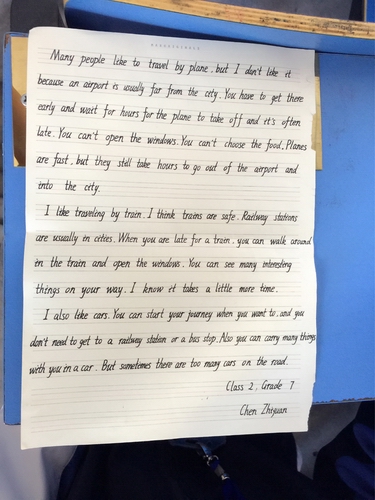 Many people like to travel by plane, but I don't like it
because an airport is usually far from the city. You have to get there
early and wait for hours for the plane to take off and it's often
late. You can't open the windows. You can't choose the food. Planes
are fast, but they still take hours to go out of the airport and
into the city.
I like traveling by train. I think trains are safe. Railway stations
are usually in cities. When you are late for a train, you can walk around
in the train and open the windows. You can see many interesting
things on your way. I know it takes a little more time.
I also like cars. You can start your journey when you want to, and you
don't need to get to a railway station or a bus stop. Also you can carry many things
with you in a car. But sometimes there are too many cars on the road.
Class 2, Grade 7
Chen Zhiyuan